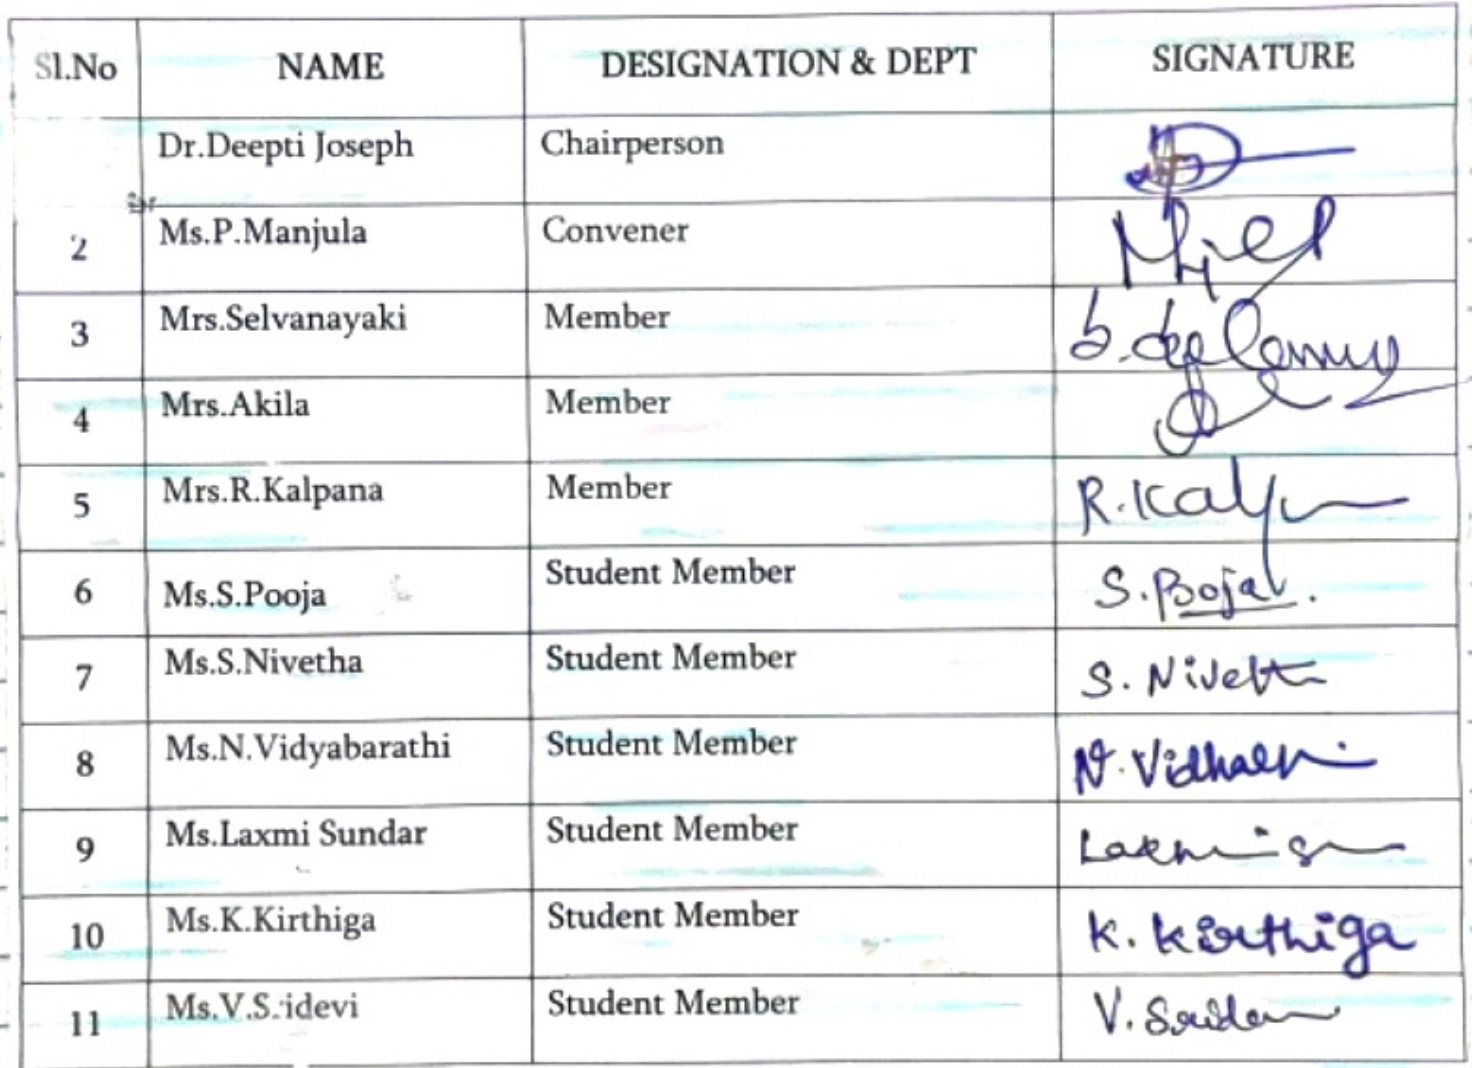 Sl.No NAME DESIGNATION & DEPT SIGNATURE
Dr.Deepti Joseph Chairperson
2 Ms.P.Manjula Convener
3 Mrs.Selvanayaki Member
4 Mrs.Akila Member
5 Mrs.R.Kalpana Member R.Kalp
6 Ms.S.Pooja Student Member S.Pooja.
7 Ms.S.Nivetha Student Member S. Niveth
8 Ms.N.Vidyabarathi Student Member
9 Ms.Laxmi Sundar Student Member
10 Ms.K.Kirthiga Student Member K. Kirthiga
11 Ms.V.S.idevi Student Member